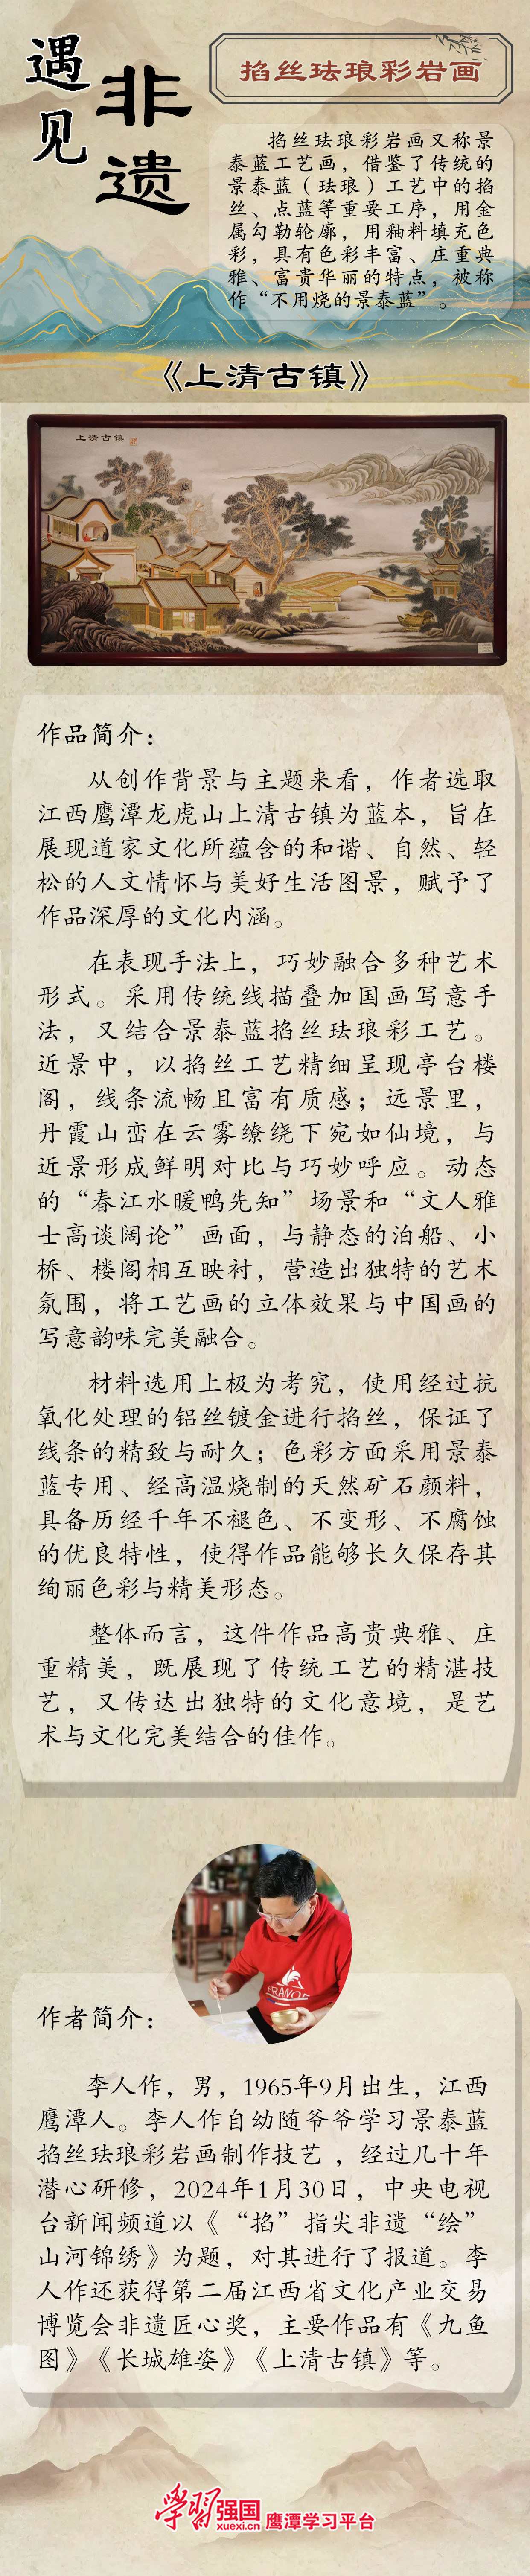 遇见
非遗
掐丝珐琅彩岩画
掐丝珐琅彩岩画又称景
泰蓝工艺画，借鉴了传统的
景泰蓝（珐琅）工艺中的掐
丝、点蓝等重要工序，用金
属勾勒轮廓，用釉料填充色
彩，具有色彩丰富、庄重典
雅、富贵华丽的特点，被称
作“不用烧的景泰蓝”。
《上清古镇》
上清古镇
作品简介：
从创作背景与主题来看，作者选取
江西鹰潭龙虎山上清古镇为蓝本，旨在
展现道家文化所蕴含的和谐、自然、轻
松的人文情怀与美好生活图景，赋予了
作品深厚的文化内涵。
在表现手法上，巧妙融合多种艺术
形式。采用传统线描叠加国画写意手
法，又结合景泰蓝掐丝珐琅彩工艺。
近景中，以掐丝工艺精细呈现亭台楼
阁，线条流畅且富有质感；远景里，
丹霞山峦在云雾缭绕下宛如仙境，与
近景形成鲜明对比与巧妙呼应。动态
的“春江水暖鸭先知”场景和“文人雅
士高谈阔论”画面，与静态的泊船、小
桥、楼阁相互映衬，营造出独特的艺术
氛围，将工艺画的立体效果与中国画的
写意韵味完美融合。
材料选用上极为考究，使用经过抗
氧化处理的铝丝镀金进行掐丝，保证了
线条的精致与耐久；色彩方面采用景泰
蓝专用、经高温烧制的天然矿石颜料，
具备历经千年不褪色、不变形、不腐蚀
的优良特性，使得作品能够长久保存其
绚丽色彩与精美形态。
整体而言，这件作品高贵典雅、庄
重精美，既展现了传统工艺的精湛技
艺，又传达出独特的文化意境，是艺
术与文化完美结合的佳作。
FRANCE
作者简介：
李人作，男，1965年9月出生，江西
鹰潭人。李人作自幼随爷爷学习景泰蓝
掐丝珐琅彩岩画制作技艺，经过几十年
潜心研修，2024年1月30日，中央电视
台新闻频道以《“掐”指尖非遗“绘”
山河锦绣》为题，对其进行了报道。李
人作还获得第二届江西省文化产业交易
博览会非遗匠心奖，主要作品有《九鱼
图》《长城雄姿》《上清古镇》等。
学习强国
xuexi.cn
鹰潭学习平台